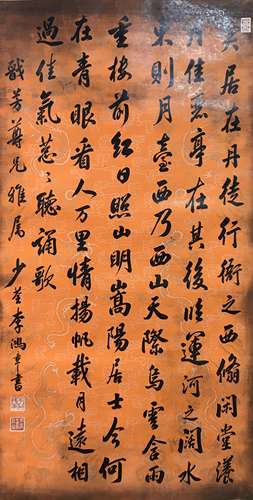 居在丹徒行衙之西翛閑堂漾
月佳麗亭在其後臨運河之闊水
東則月臺西乃西山天際烏雲含雨
重樓前紅日照山明嵩陽居士今何
在青眼看人万里情揚帆載月遠相
過佳氣葱々聽誦歌
尊兄雅屬
少荃李鴻章書